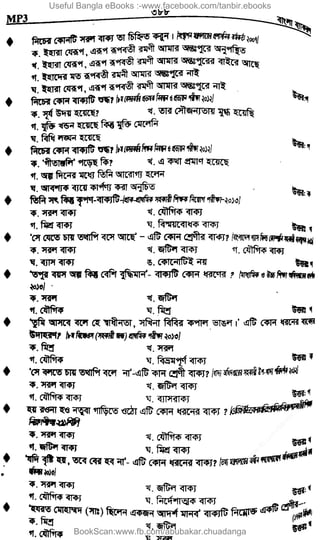 Useful Bangla eBooks :-www.facebook.com/tanbir.ebooks
MP3 ৩৮৮ বাংলা
♦ নিচের কোনটি সরল বাক্য তা চিহ্নিত করুন।
ক. ইহারা যেরূপ, এরূপ রূপবতী রমণী আমার অন্তঃপুরে অনুপস্থিত
খ. ইহারা যেরূপ, এরূপ রূপবতী রমণী আমার অন্তঃপুরের বাইরে আছে
গ. ইহাদের মত রূপবতী রমণী আমার অন্তঃপুরে নাই
ঘ. ইহারা যেরূপ, এরূপ রূপবতী রমণী আমার অন্তঃপুরে নাই
♦ নিচের কোন বাক্যটি শুদ্ধ?
ক. সূর্য উদয় হয়েছে? খ. তার সৌজন্যতায় মুগ্ধ হয়েছি
গ. যুক্তি খন্ডন হয়েছে কিন্তু মুক্তি মেলেনি
ঘ. বিধি লঙ্ঘন হয়েছে
♦ নিচের কোন বাক্যটি শুদ্ধ?
ক. 'গীতাঞ্জলি' পড়েছ কি? খ. এ কথা প্রমাণ হয়েছে
গ. অল্প দিনের মধ্যে তিনি আরোগ্য হলেন
ঘ. আবশ্যক ব্যয়ে কার্পণ্য করা অনুচিত
♦ তিনি সৎ কিন্তু কৃপণ-বাক্যটি-
ক. সরল বাক্য খ. যৌগিক বাক্য
গ. মিশ্র বাক্য ঘ. বিস্ময়বোধক বাক্য
♦ 'সে যেতে চায় তথাপি বসে আছে' – এটি কোন শ্রেণীর বাক্য?
ক. সরল বাক্য খ. জটিল বাক্য গ. যৌগিক বাক্য
ঘ. ব্যাস বাক্য ঙ. কোনোটিই নয়
♦ 'তপুর বয়স অল্প কিন্তু বেশি বুদ্ধিমান'- বাক্যটি কোন ধরণের ?
২০১০।
ক. সরল খ. জটিল
গ. যৌগিক ঘ. মিশ্র
♦ 'তুমি আসবে বলে হে স্বাধীনতা, সখিনা বিবির কপাল ভাঙল।' এটি কোন ধরনের বাক্যের
উদাহরণ?
ক. মিশ্র খ. সরল
গ. যৌগিক ঘ. বিভ্রমপূর্ণ বাক্য
♦ 'সে বলতে চায় তথাপি বলে না'-এটি কোন শ্রেণী বাক্য?
ক. সরল বাক্য খ. জটিল বাক্য
গ. যৌগিক বাক্য ঘ. ব্যাসবাক্য
♦ হয় রওনা হও নতুবা গাড়িতে ওঠো এটি কোন ধরনের বাক্য ?
ক. সরল বাক্য খ. যৌগিক বাক্য
গ. জটিল বাক্য ঘ. মিশ্র বাক্য
♦ 'যদি বৃষ্টি হয়, তবে বের হব না'- এটি কোন ধরনের বাক্য?
ক. সরল বাক্য খ. জটিল বাক্য
গ. যৌগিক বাক্য ঘ. নির্দেশাত্মক বাক্য
♦ 'হযরত মোহাম্মদ (সাঃ) ছিলেন একজন আদর্শ মানব' বাক্যটি নিম্নোক্ত একটি শ্রেণীর
ক. মিশ্র খ. জটিল
গ. যৌগিক ঘ. সরল
BookScan:www.fb.com/abubakar.chuadanga